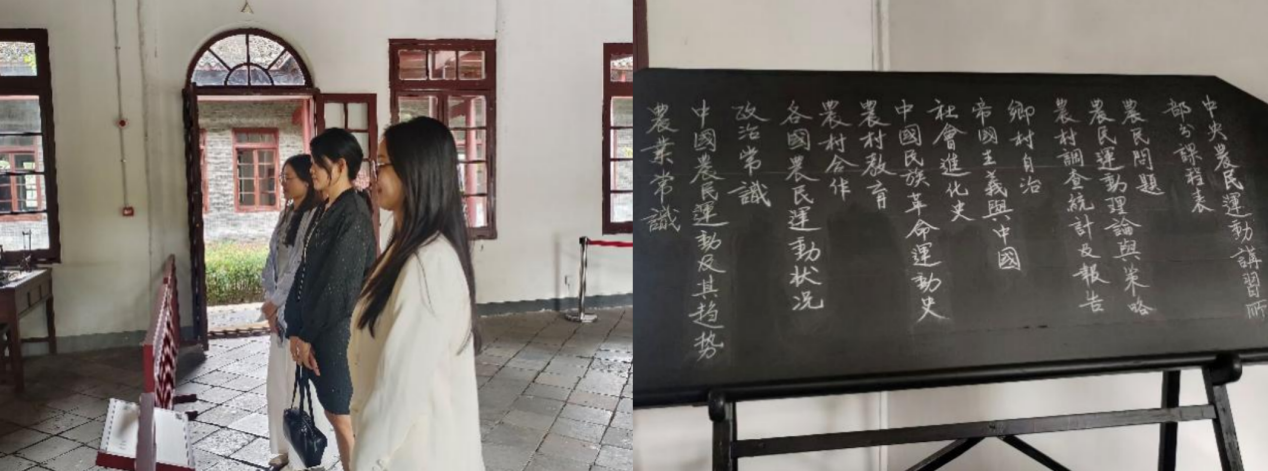 中央農民運動講習所
部分課程表
農民問題
農民運動理論與策略
農村調查統計及報告
鄉村自治
帝國主義與中國
社會進化史
中國民族革命運動史
農村教育
農村合作
各國農民運動狀况
政治常識
中國農民運動及其趨势
農業常識